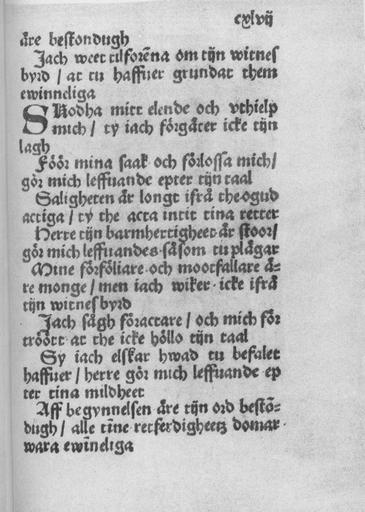 cxlvij
äre bestondugh
Jach weet tilforēna om tijn witnes
byrd / at tu haffuer grundat them
ewinneliga
SKodha mitt elende och vthielp
mich / ty iach förgäter icke tijn
lagh
Föör mina saak och förlossa mich /
gör mich leffuande epter tijn taal
Saligheten är longt ifrå the ogud
actiga / ty the acta intit tina retter
Herre tijn barmhertigheet är stoor /
gör mich leffuandes såsom tu plägar
Mine förföliare och mootfallare ä=
re monge / men iach wiker icke ifrå
tijn witnesbyrd
Jach sågh föractare / och mich för
tröött at the icke höllo tijn taal
Sy iach elskar hwad tu befalet
haffuer / herre gör mich leffuande ep
ter tina mildheet
Aff begynnelsen äre tijn ord bestō=
dugh / alle tīne retferdigheetz domar
wara ewīneliga